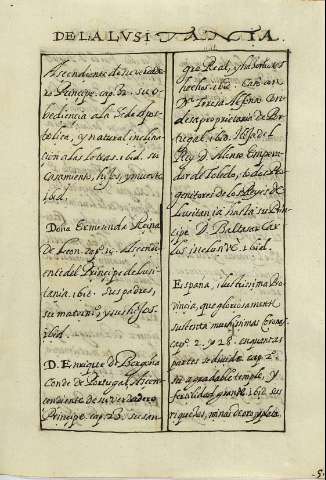 DE LA LVSITANIA.
Ascendiente de su verdade
ro Principe. cap. 32. su o
bediencia a la Sede Apos
tolica, y natural inclina
cion a las letras. ibid. su
casamiento, hijos, y muerte
ibid.
Doña Ermesenda Reina
de Leon. cap. 19. Ascendi
ente del Principe de Lusi
tania. ibid. sus padres,
su matrimo. y sus hijos.
ibid.
D. Enrique de Borgoña
Conde de Portugal Ascen
diente de su verdadero
Principe. cap. 23. su san
gre Real, y
hechos. ibid. con
Dª Teresa Alfonso Con
desa proprietaria de Por
tugal. ibid. Hija del
Rey D. Alonso Empera
dor de Toledo,
genitores de los Reyes de
Lusitania hasta su Prin
cipe D. Baltasar Car
los inclusive. ibid.
Espana, ilustrissima Pro
vincia, que gloriosament
sustenta muchissimas Coronas.
cap. 2. y 28. en quantas
partes se divide. cap. 2.
su agradable temple, y
fertilidad grande. ibid. sus
riquezas, minas de oro, y plata
5.